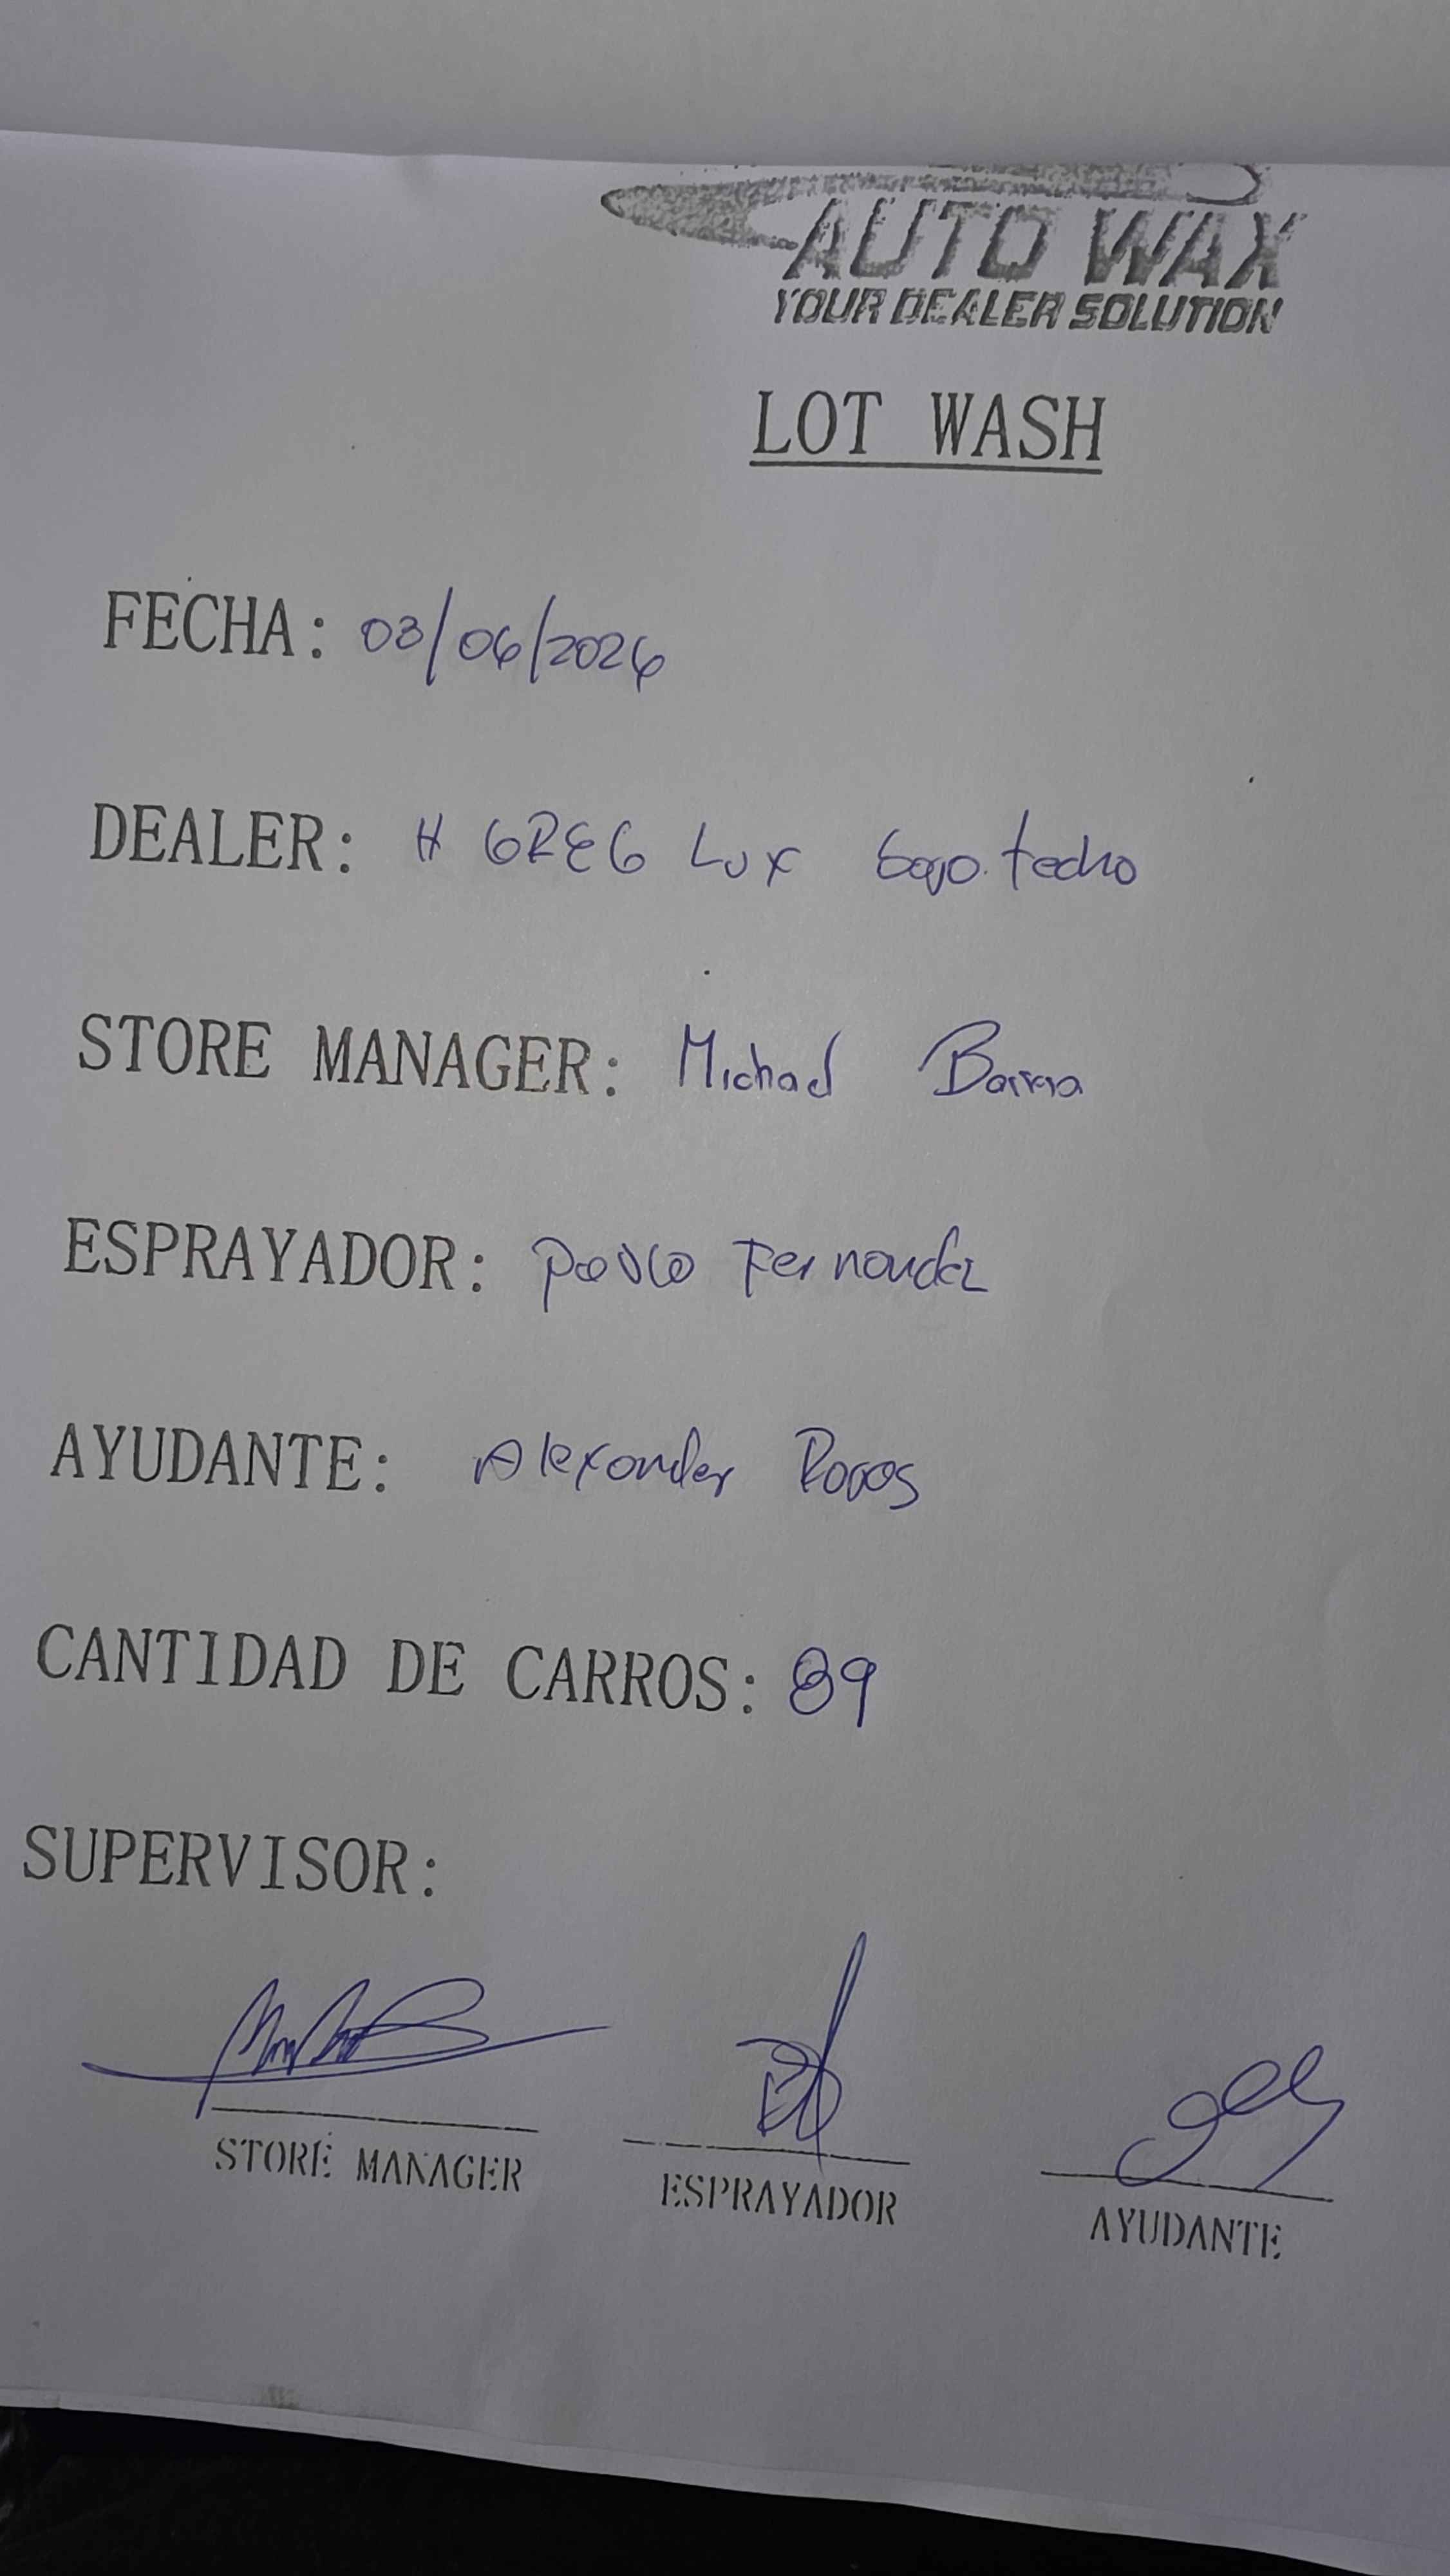 AUTO WAX
YOUR DEALER SOLUTION
LOT WASH
FECHA: 03/06/2026
DEALER: H GREG Lux bajo techo
STORE MANAGER: Michael Barrera
ESPRAYADOR: Pablo Fernandez
AYUDANTE: Alexander
CANTIDAD DE CARROS: 89
SUPERVISOR:
STORE MANAGER ESPRAYADOR AYUDANTE